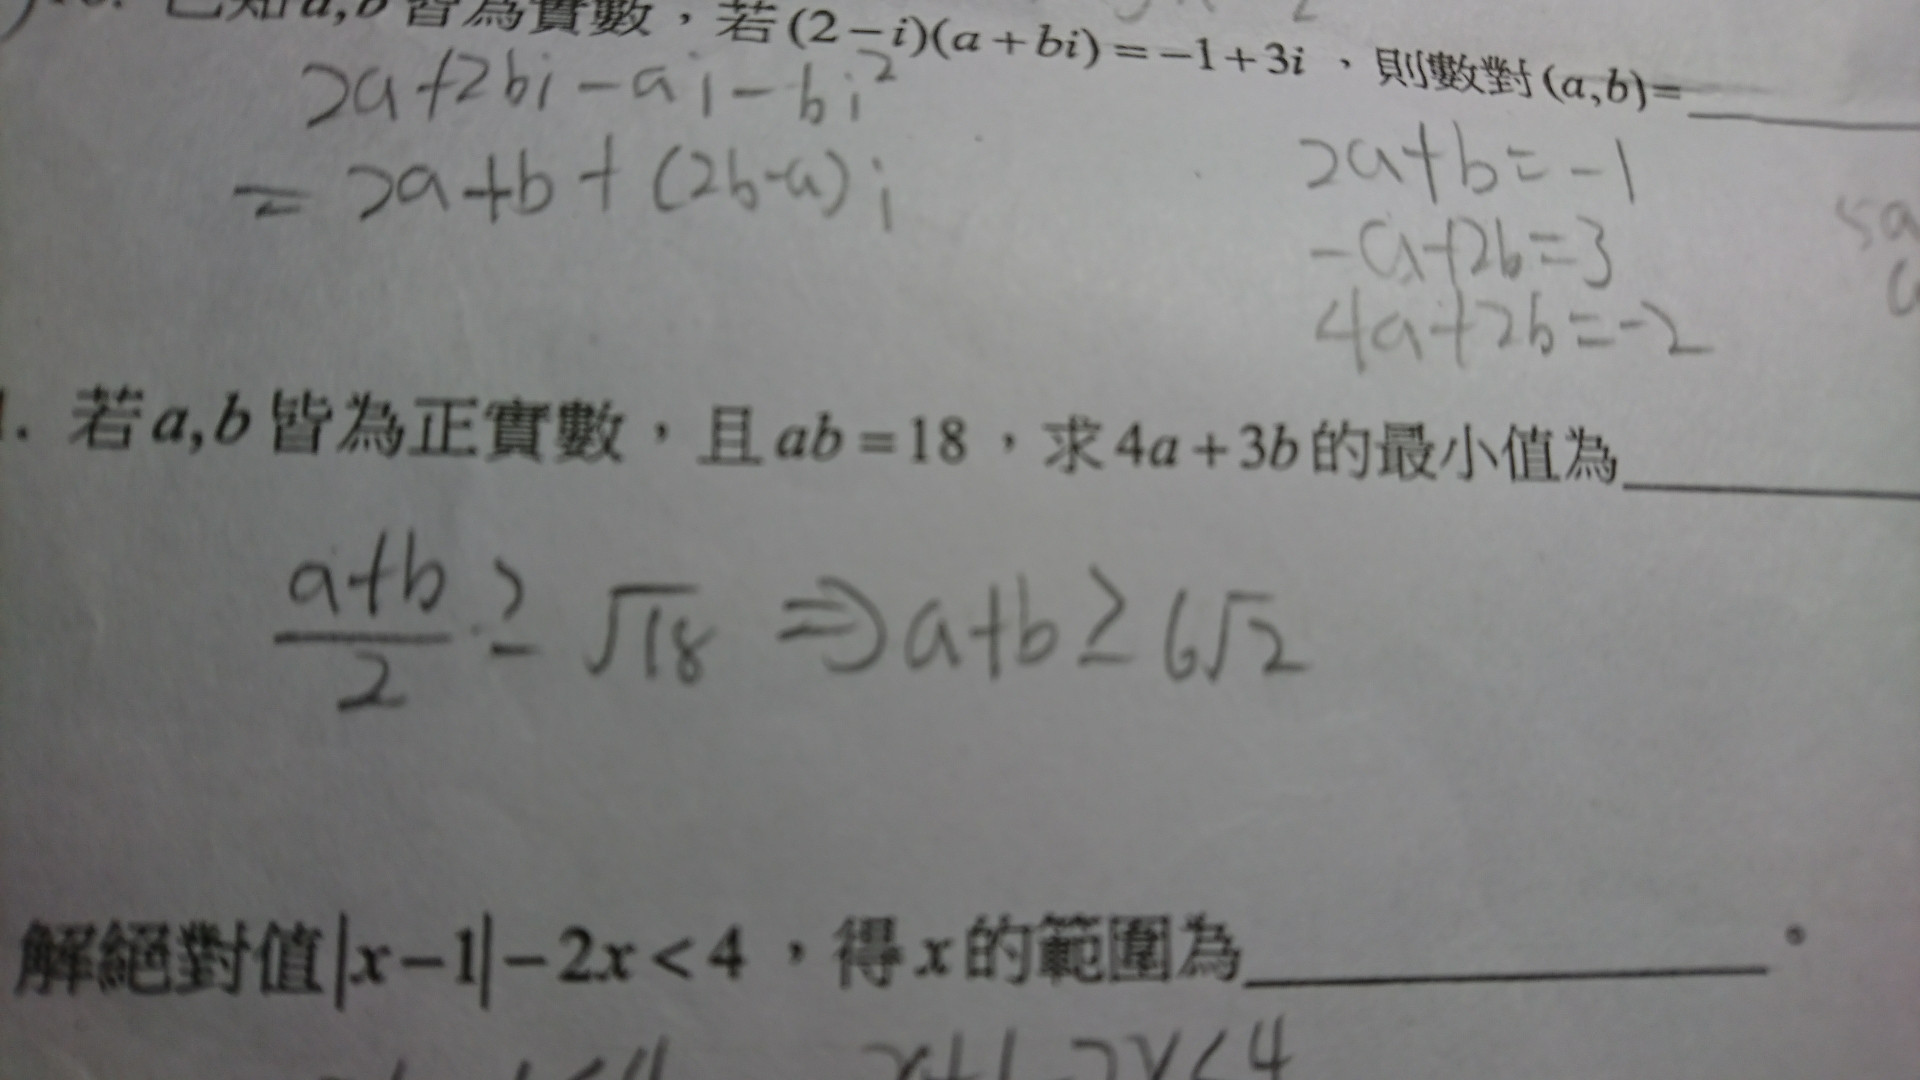 已知a,b皆為實數，若(2-i)(a+bi)=-1+3i，則數對(a,b)=
2a+2bi-ai-bi²
=2a+b+(2b-a)i
2a+b=-1
-a+2b=3
4a+2b=-2
5a
1. 若a,b皆為正實數，且ab=18，求4a+3b的最小值為
a+b/2 ≥ √18 ⇒ a+b ≥ 6√2
解絕對值|x-1|-2x<4，得x的範圍為。
<4 x+1-2x<4